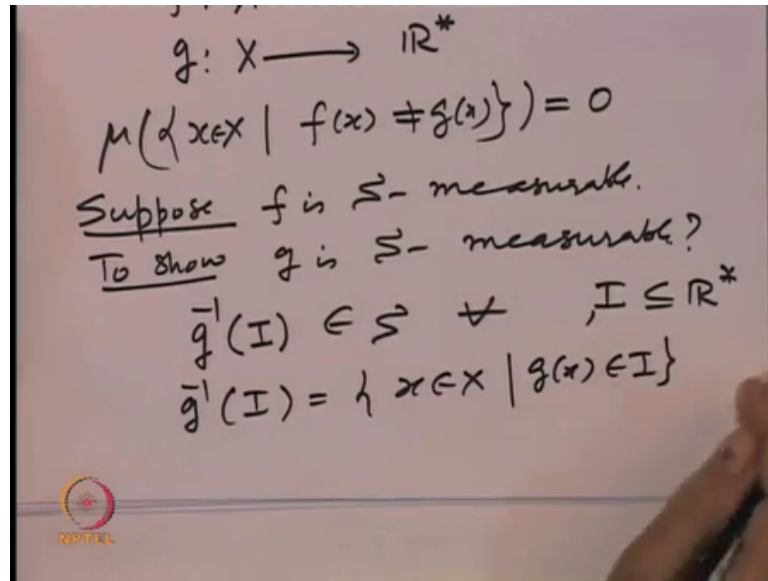 g: X ⟶ ℝ*
μ({x∈X | f(x) ≠ g(x)}) = 0
Suppose f is S- measurable.
To Show g is S- measurable?
g⁻¹(I) ∈ S ∀ , I ⊆ ℝ*
g⁻¹(I) = { x∈X | g(x) ∈ I}
NPTEL